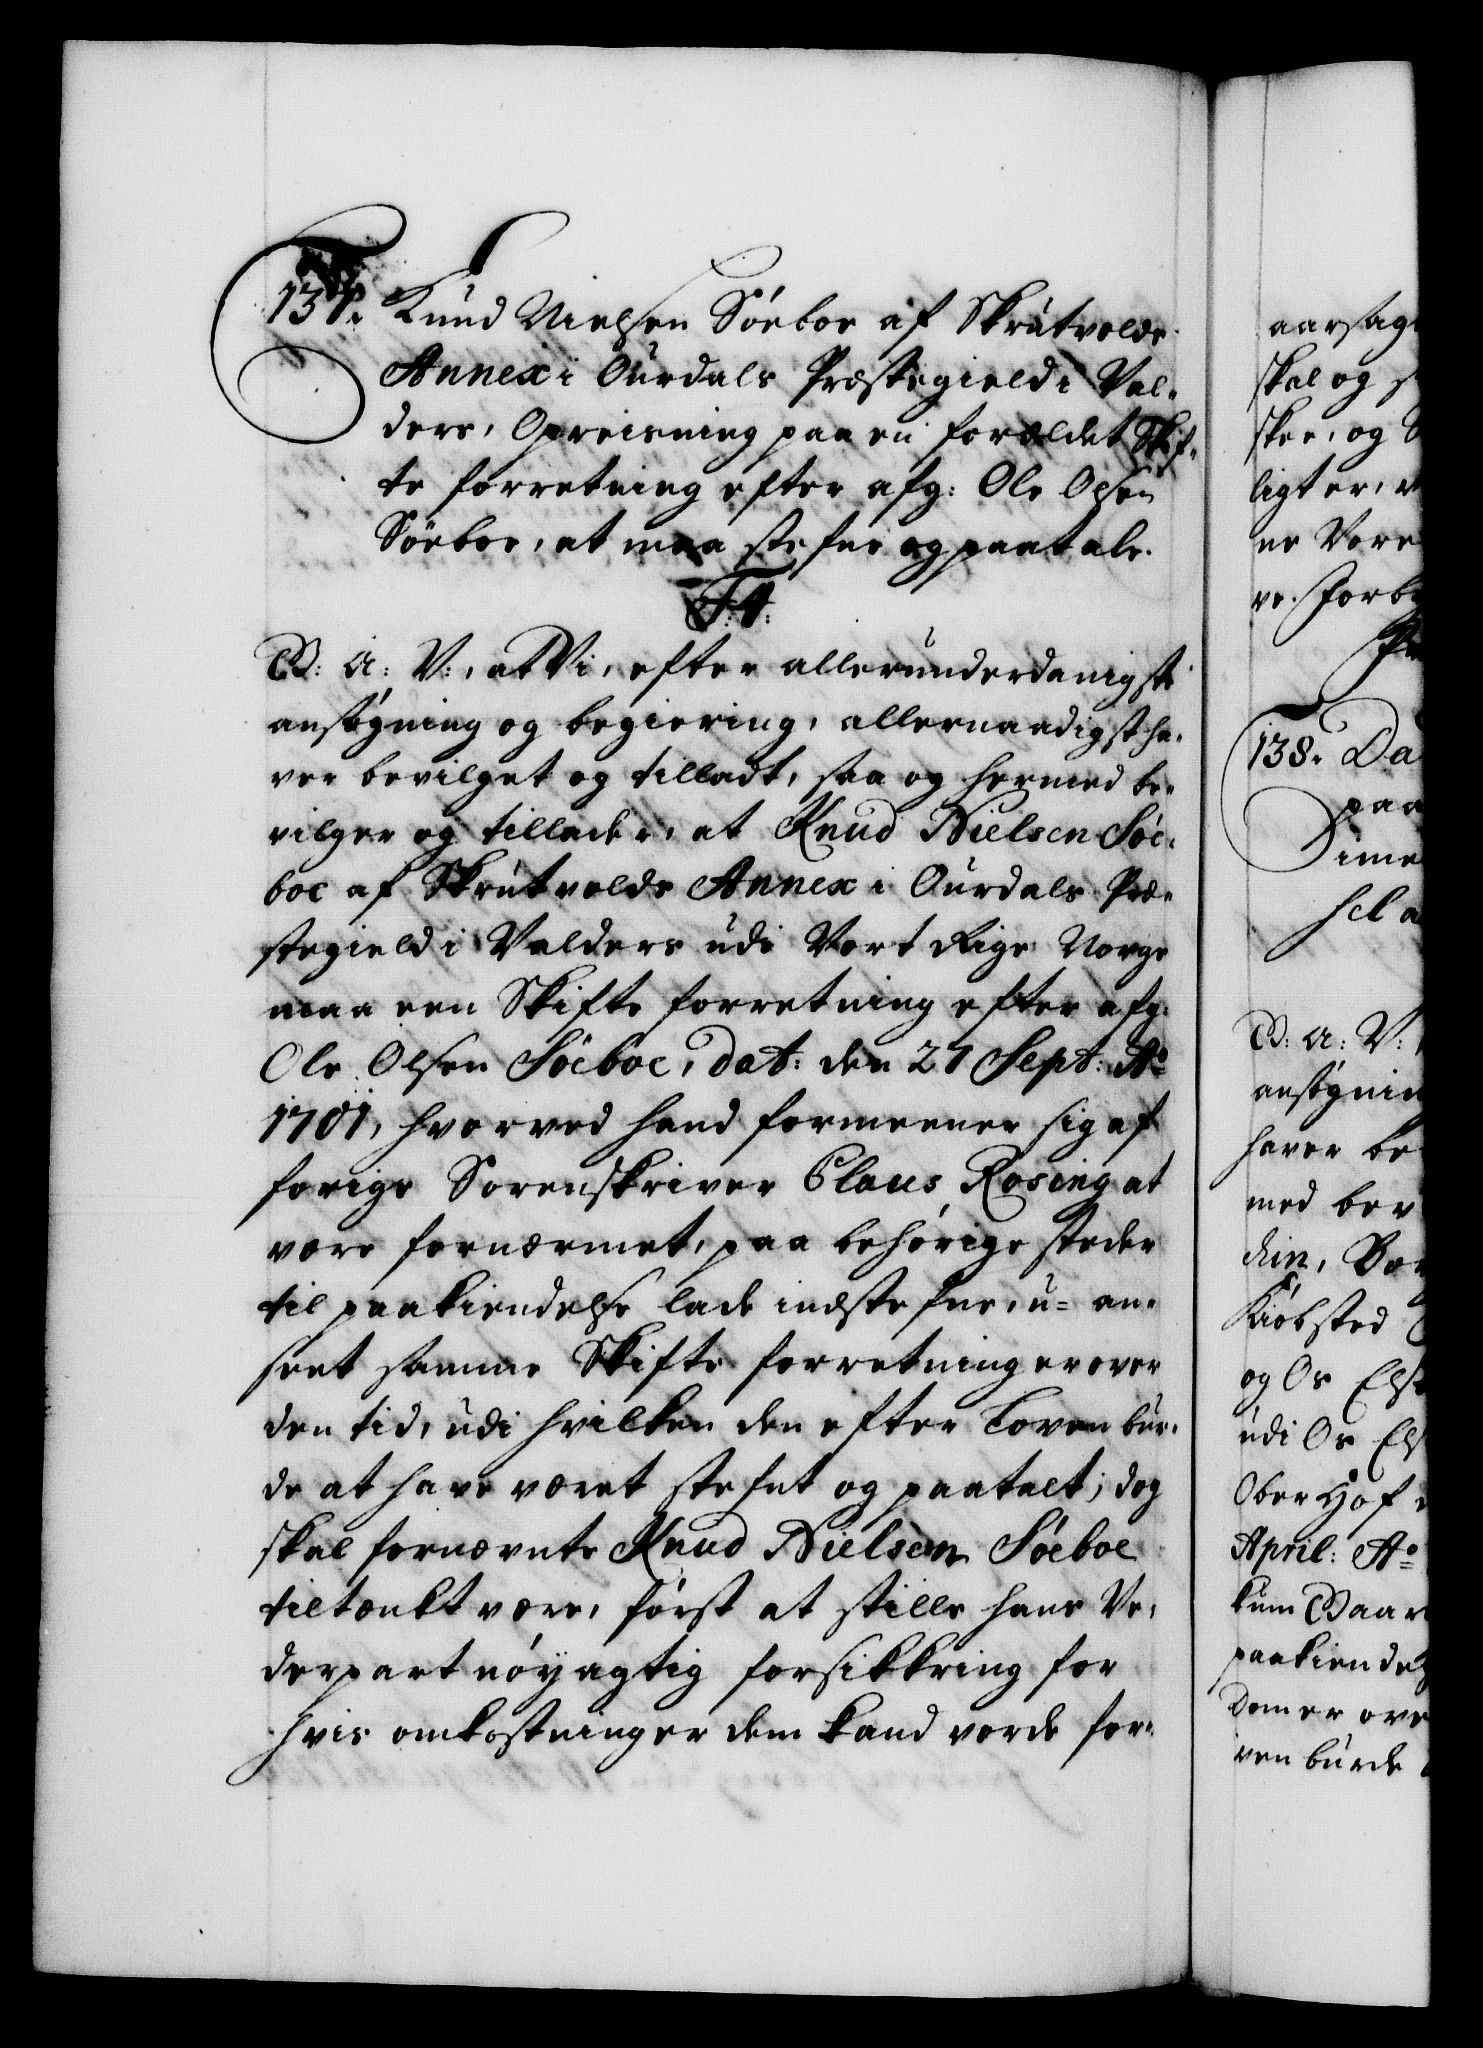 137. Knud Nielsen Söeboe af Skrutvolds
Annex i Ourdals Præstegield i Val-
ders, Opreisning paa en forældet Skif-
te forretning efter afg: Ole Olsen
Söeboe, at maa stefne og paatale.
F: 4:
G: A: V:, at Vi, efter allerunderdanigste
ansögning og begiering, allernaadigst ha-
ver bevilget og tilladt, saa og hermed be-
vilger og tillader, at Knud Nielsen Söe-
boe af Skrutvolds Annex i Ourdals Præ-
stegield i Valders udi Vort Rige Norge
maa een Skifte forretning efter afg:
Ole Olsen Söeboe, dat: den 27 Sept: Aº
1701, hvorved hand formeener sig af
forige Sorenskriver Claus Rosing at
være fornærmet, paa behörige steder
til paakiendelse lade indstefne, u= an-
seet samme Skifte forretning er over
den tid, udi hvilken den efter Loven bur-
de at have været stefnt og paatalt; dog
skal fornævnte Knud Nielsen Söeboe
tiltænkt være, först at stille hans Ve-
derpart nöyagtig forsikkring for
hvis omkostninger dem kand vorde for-
aarsag
skal og
skee, og
ligt er,
ne Vore
ve. Forby
138. Da
paa
Dime
hel a
G: A: V:
ansögnin
haver be
med bev
din, Bor
Kiöbsted
og Os Els
udi Os Els
Ober Hof
April: Aº
kum Baar
paakiendel
Dom er ove
ven burde